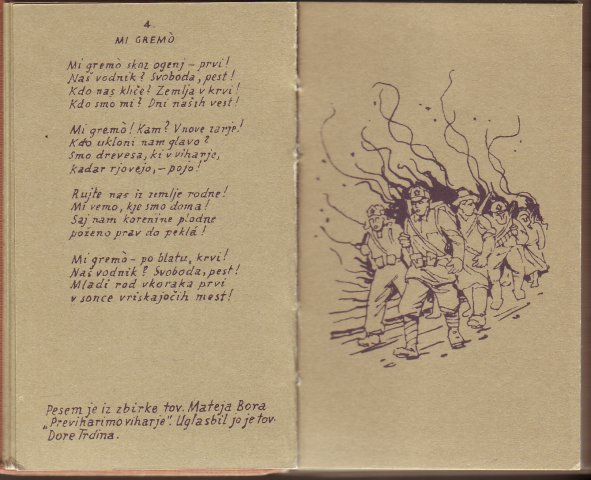 4.
MI GREMÒ
Mi gremò skoz ogenj – prvi!
Naš vodnik? Svoboda, pest!
Kdo nas kliče? Zemlja v krvi!
Kdo smo mi? Dni naših vest!
Mi gremò! Kam? V nove zarje!
Kdo ukloni nam glavo?
Smo drevesa, ki v viharje,
kadar rjovejo, – pojo!
Rujte nas iz zemlje rodne!
Mi vemo, kje smo doma!
Saj nam korenine plodne
poženo prav do peklá!
Mi gremò – po blatu, krvi!
Naš vodnik? Svoboda, pest!
Mladi rod vkoraka prvi
v sonce vriskajočih mest!
Pesem je iz zbirke tov. Mateja Bora
„Previharimo viharje". Uglasbil jo je tov.
Dore Trdina.